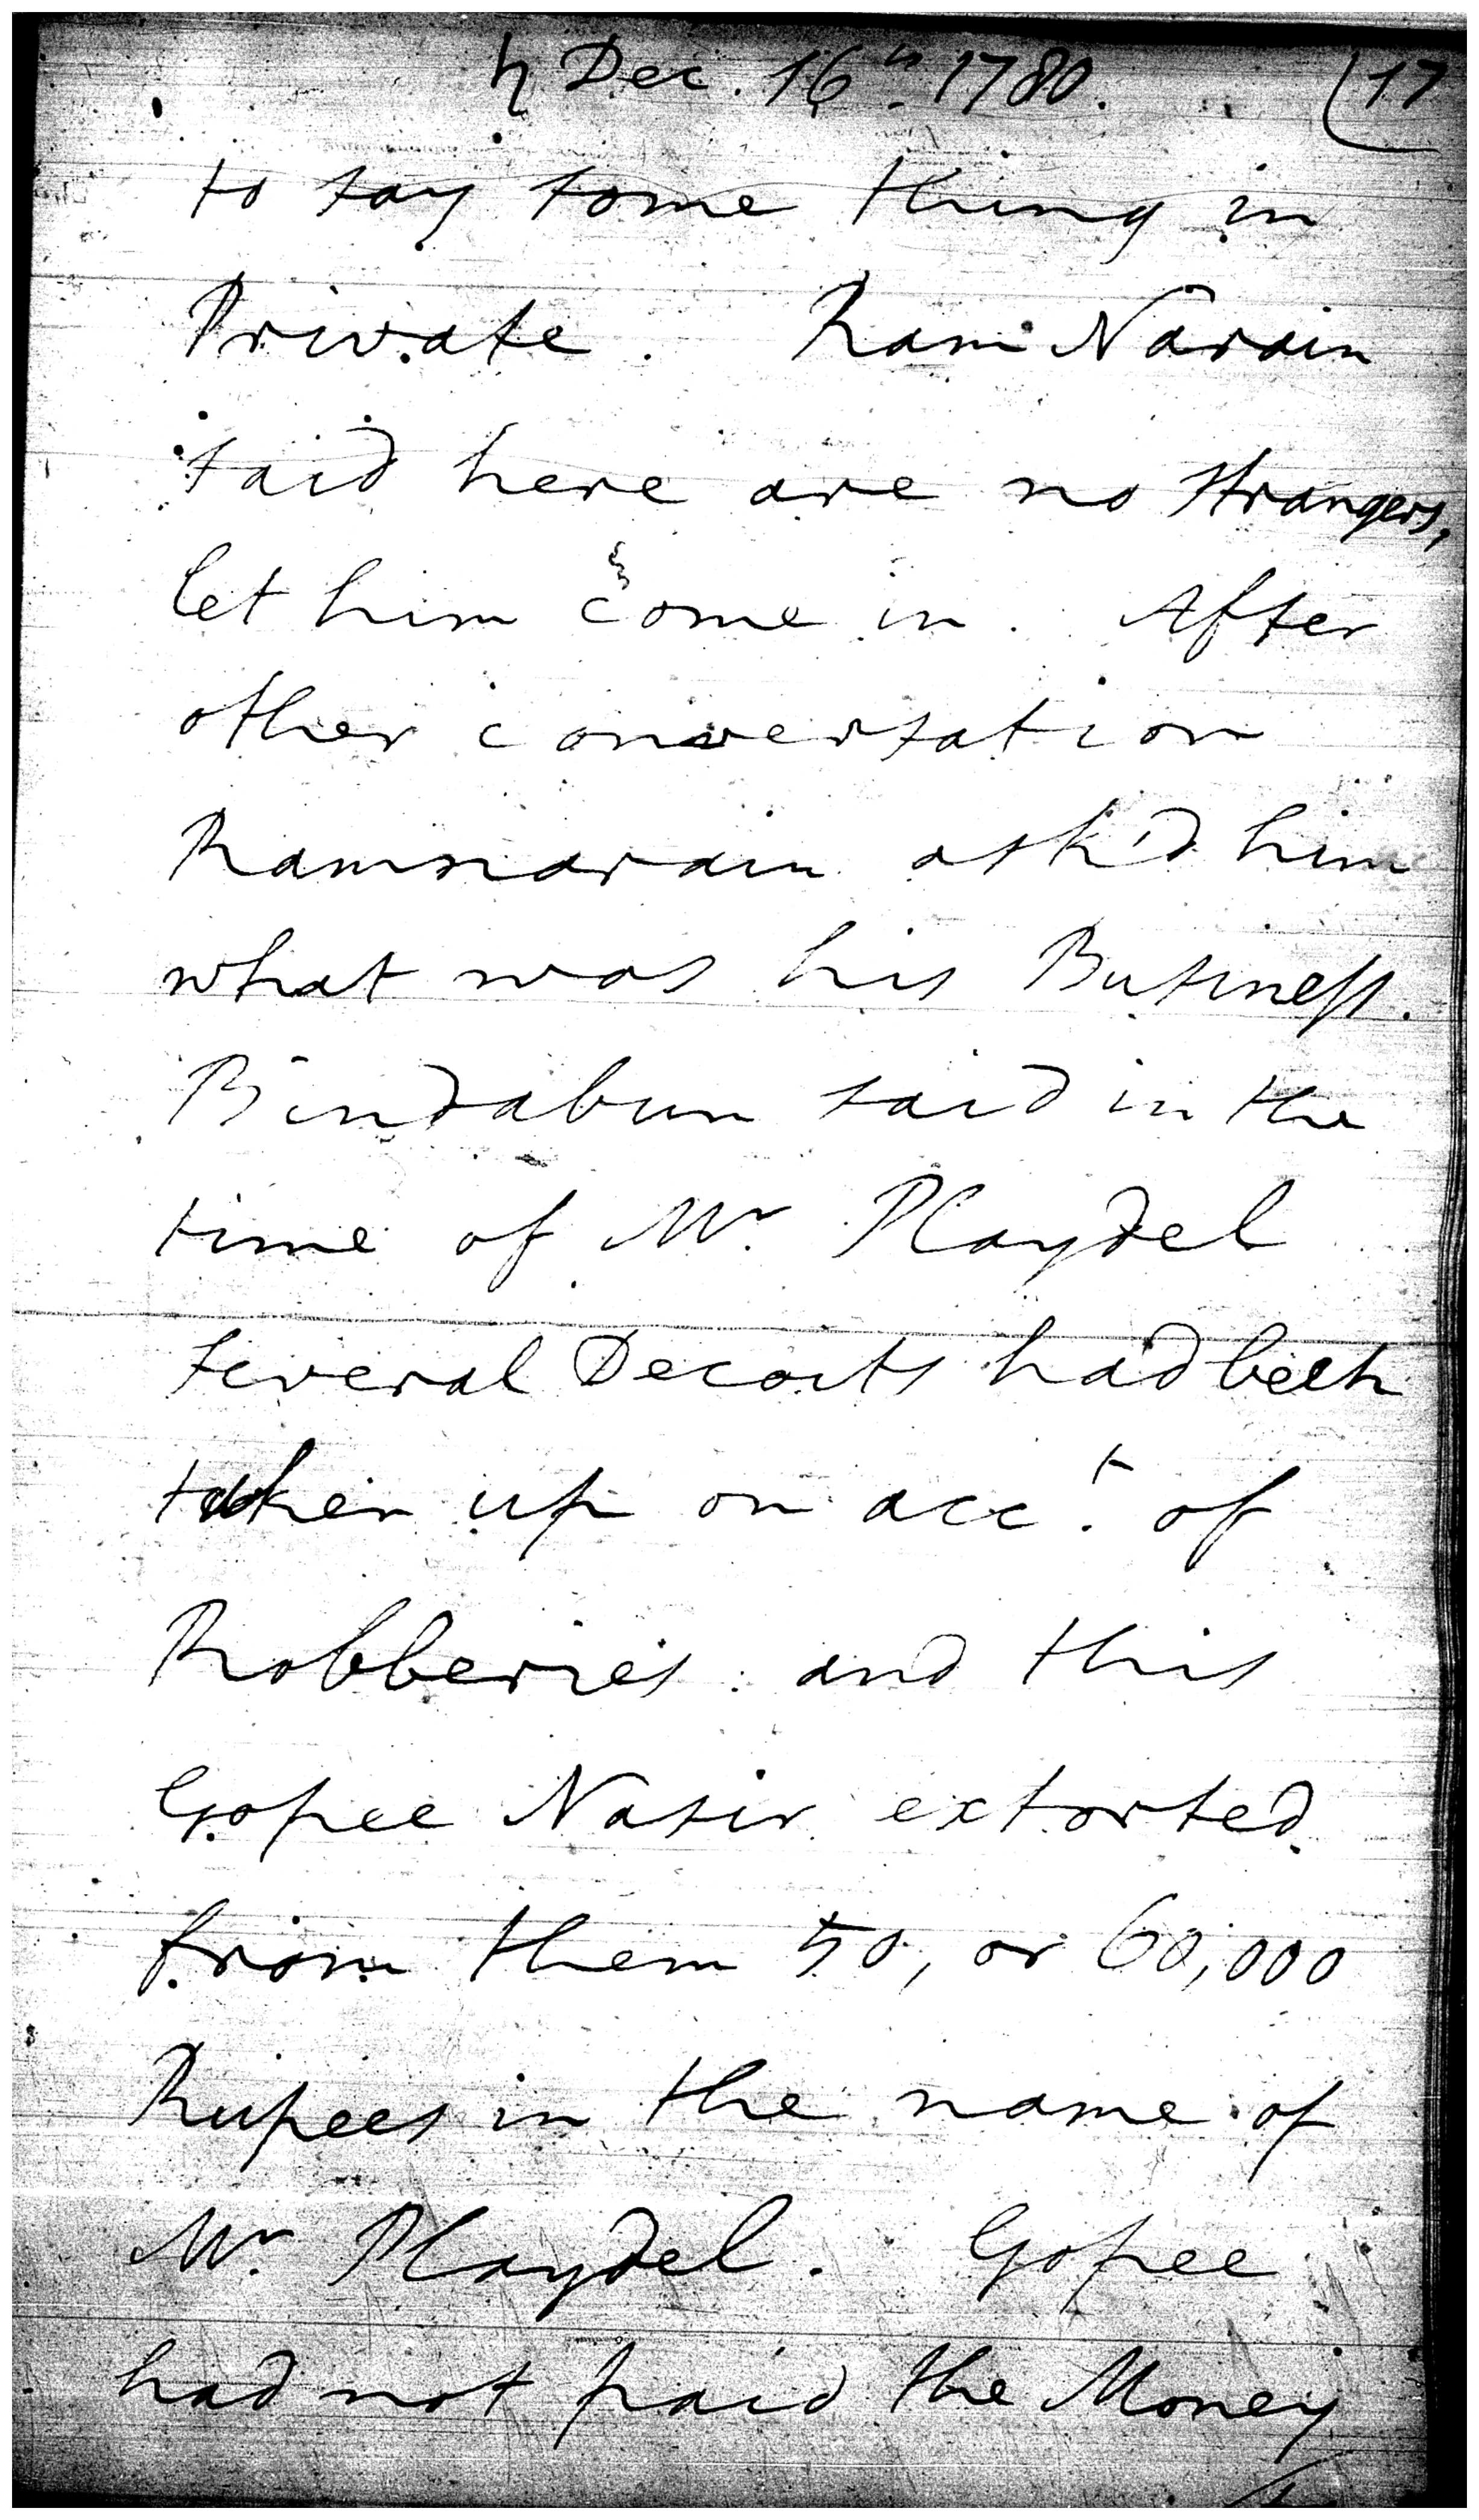 ♄ Dec. 16th. 1780. (17
to say some thing in
Private. Ram Narain
said here are no Strangers,
let him come in. After
other conversation
Ramnarain ask'd him
what was his Business.
Bindabun said in the
time of Mr. Playdel
several Decoits had been
taken up on acct. of
Robberies: and this
Gopee Nasir extorted
from them 50, or 60,000
Rupees in the name of
Mr. Playdel. Gopee
had not paid the Money